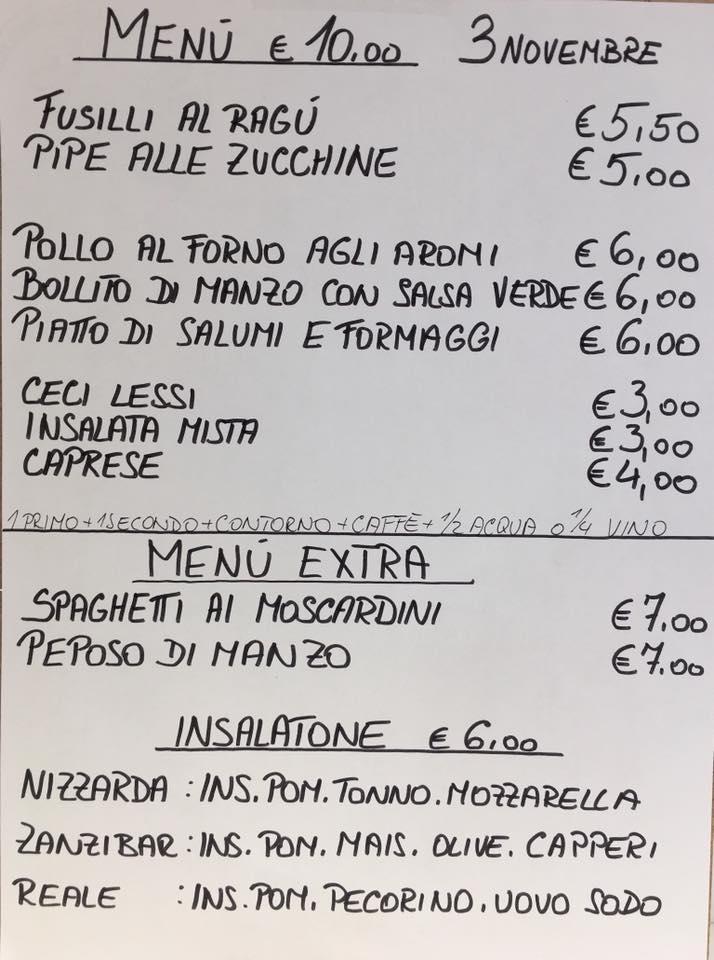 MENÚ € 10.00 3 NOVEMBRE
FUSILLI AL RAGÚ €5,50
PIPE ALLE ZUCCHINE €5,00
POLLO AL FORNO AGLI AROMI €6,00
BOLLITO DI MANZO CON SALSA VERDE €6,00
PIATTO DI SALUMI E FORMAGGI €6,00
CECI LESSI €3,00
INSALATA MISTA €3,00
CAPRESE €4,00
1 PRIMO + 1 SECONDO + CONTORNO + CAFFÈ + 1/2 ACQUA O 1/4 VINO
MENÚ EXTRA
SPAGHETTI AI MOSCARDINI €7.00
PEPOSO DI MANZO €7.00
INSALATONE € 6,00
NIZZARDA : INS. POM. TONNO. MOZZARELLA
ZANZIBAR : INS. POM. MAIS. OLIVE. CAPPERI
REALE : INS. POM. PECORINO. UOVO SODO